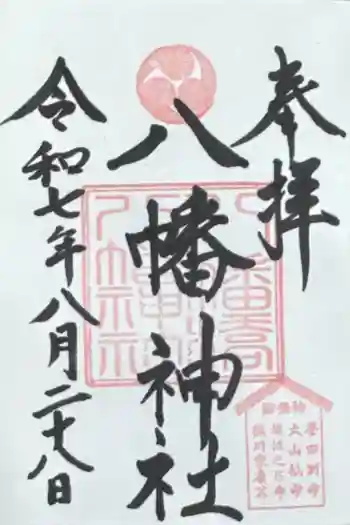 奉拝
八幡神社
令和七年八月二十八日